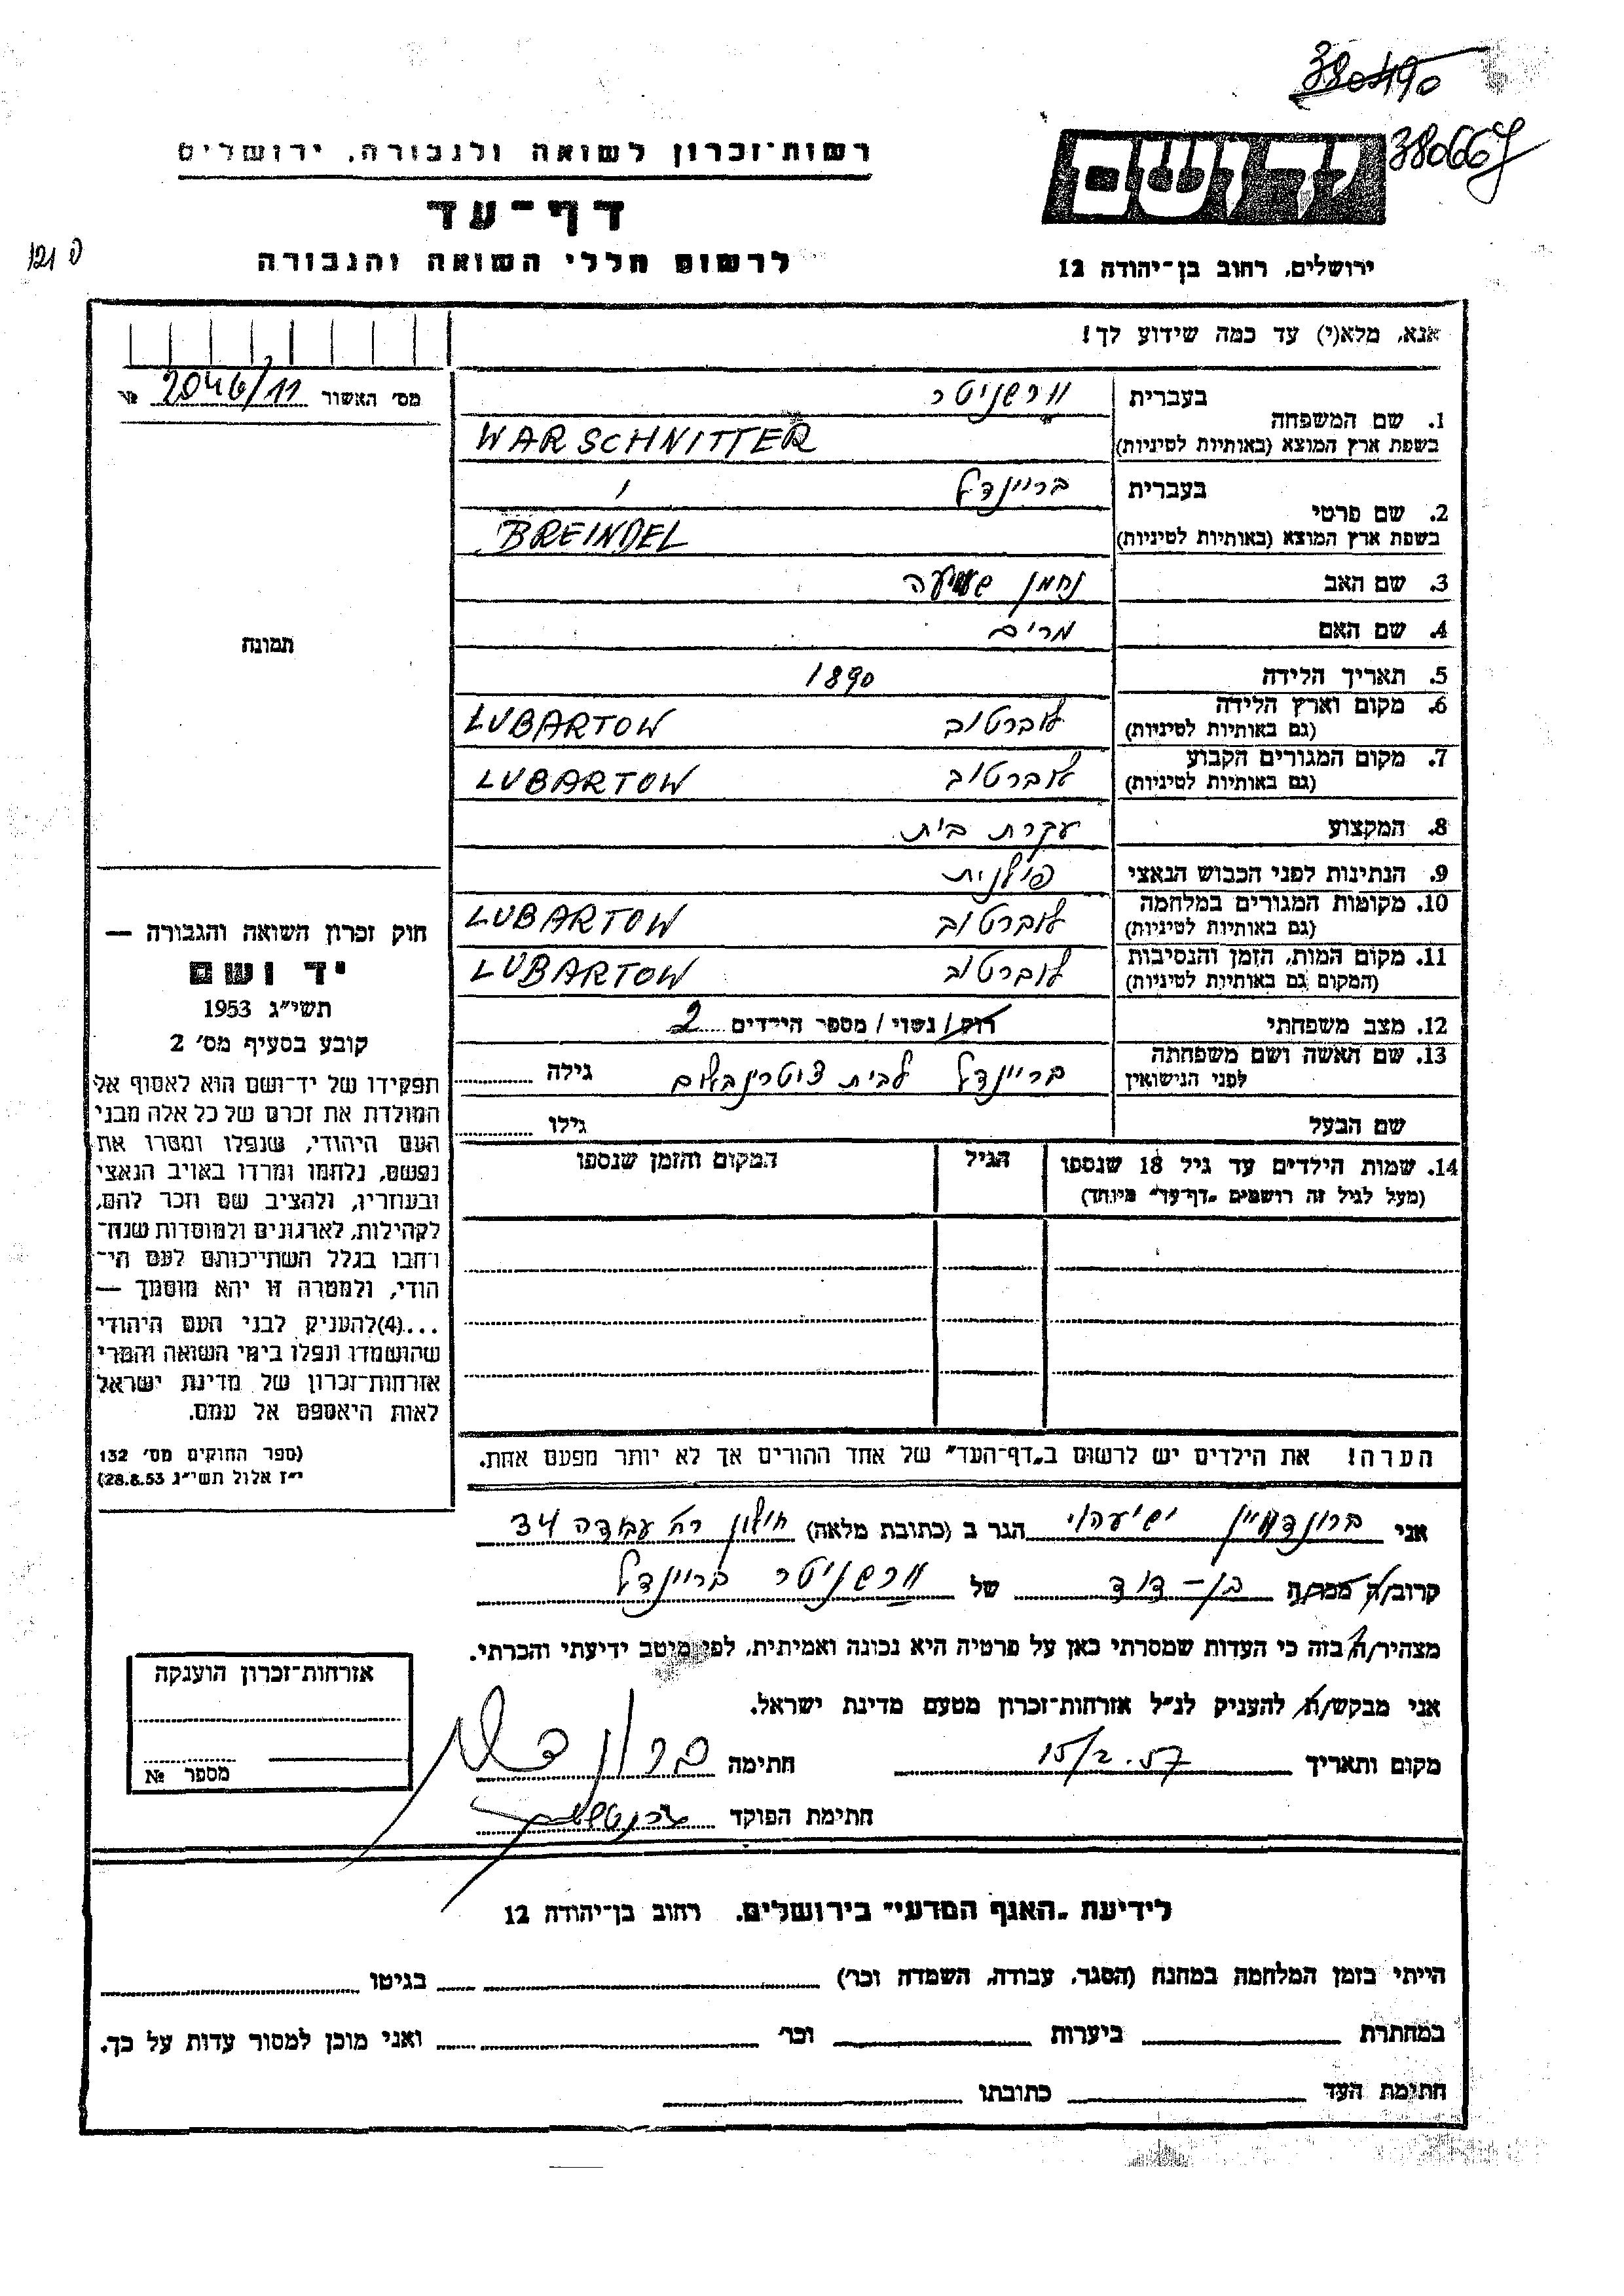 380490
380667
ידושם
רשות־זכרון לשואה ולגבורה, ירושלים
דף־עד
לרשום חללי השואה והגבורה
ירושלים, רחוב בן־יהודה 12
121 ט
אנא, מלא(י) עד כמה שידוע לך!
מס׳ האשור 2046/11 №
1. שם המשפחה
בעברית ורשניטר
בשפת ארץ המוצא (באותיות לטיניות) WARSCHNITTER
2. שם פרטי
בעברית בריינדל
בשפת ארץ המוצא (באותיות לטיניות) BREINDEL
3. שם האב נחמן
4. שם האם מרים
5. תאריך הלידה 1890
6. מקום וארץ הלידה לוברטוב LUBARTOW
(גם באותיות לטיניות)
7. מקום המגורים הקבוע לוברטוב LUBARTOW
(גם באותיות לטיניות)
8. המקצוע עקרת בית
9. הנתינות לפני הכבוש הנאצי פולנית
10. מקומות המגורים במלחמה לוברטוב LUBARTOW
(גם באותיות לטיניות)
11. מקום המות, הזמן והנסיבות לוברטוב LUBARTOW
(המקום גם באותיות לטיניות)
12. מצב משפחתי רוק/נשוי/מספר הילדים 2
13. שם האשה ושם משפחתה
לפני הנישואין בריינדל לבית גילה
שם הבעל גילו
14. שמות הילדים עד גיל 18 שנספו הגיל המקום והזמן שנספו
(מעל לגיל זה רושמים „דף־עד״ מיוחד)
הערה! את הילדים יש לרשום ב„דף־העד״ של אחד ההורים אך לא יותר מפעם אחת.
תמונה
חוק זכרון השואה והגבורה —
יד ושם
תשי״ג 1953
קובע בסעיף מס׳ 2
תפקידו של יד־ושם הוא לאסוף אל
המולדת את זכרם של כל אלה מבני
העם היהודי, שנפלו ומסרו את
נפשם, נלחמו ומרדו באויב הנאצי
ובעוזריו, ולהציב שם וזכר להם,
לקהילות, לארגונים ולמוסדות שנח־
רחבו בגלל השתייכותם לעם הי־
הודי, ולמטרה זו יהא מוסמך —
...(4)להעניק לבני העם היהודי
שהושמדו ונפלו בימי השואה והמרי
אזרחות־זכרון של מדינת ישראל
לאות היאספם אל עמם.
(ספר החוקים מס׳ 132
י״ז אלול תשי״ג 28.8.53)
אני ישעיהו הגר ב (כתובת מלאה) חולון רח׳ עבודה 34
קרוב/ה ממר/ה בן-דוד של ורשניטר בריינדל
מצהיר/ה בזה כי העדות שמסרתי כאן על פרטיה היא נכונה ואמיתית, לפי מיטב ידיעתי והכרתי.
אני מבקש/ת להעניק לנ״ל אזרחות־זכרון מטעם מדינת ישראל.
מקום ותאריך 15/2.57 חתימה
חתימת הפוקד
אזרחות־זכרון הוענקה
מספר №
לידיעת „האגף המדעי״ בירושלים, רחוב בן־יהודה 12
הייתי בזמן המלחמה במחנה (הסגר, עבודה, השמדה וכו׳) בגיטו
במחתרת ביערות וכו׳ ואני מוכן למסור עדות על כך.
חתימת העד כתובתו